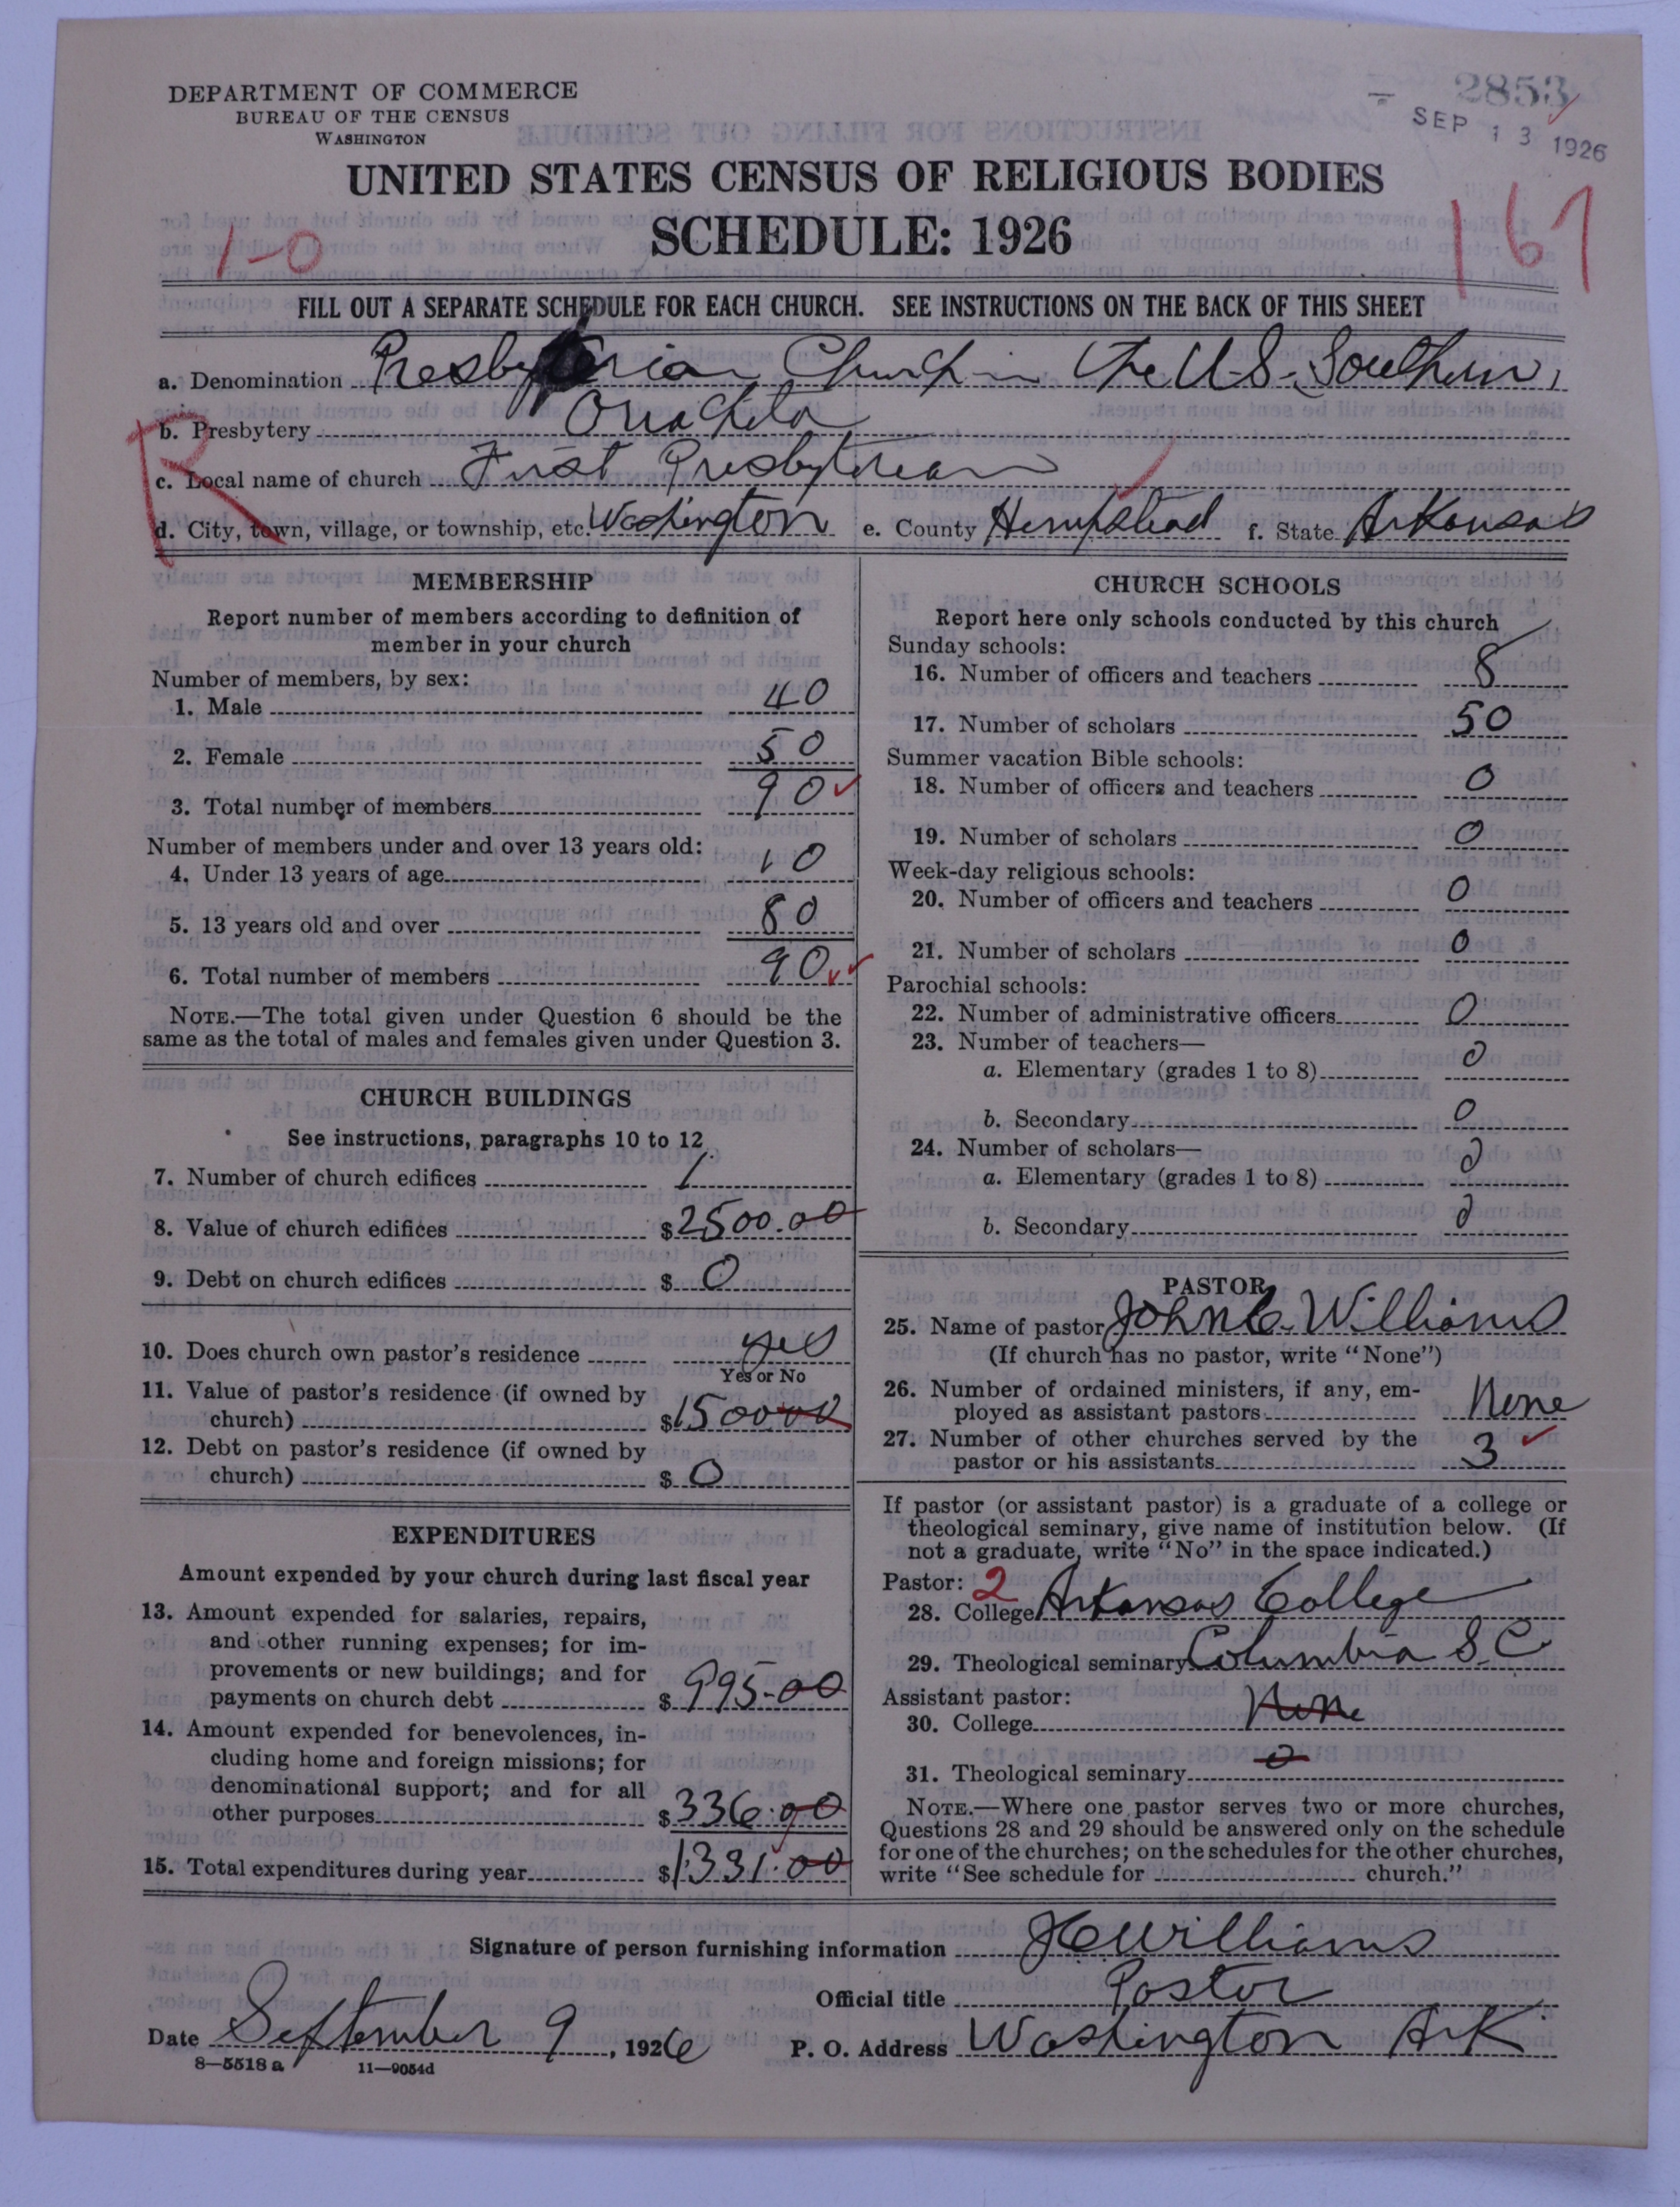 DEPARTMENT OF COMMERCE
BUREAU OF THE CENSUS
WASHINGTON
2853
SEP 13 1926
UNITED STATES CENSUS OF RELIGIOUS BODIES
SCHEDULE: 1926
1-0
167
FILL OUT A SEPARATE SCHEDULE FOR EACH CHURCH. SEE INSTRUCTIONS ON THE BACK OF THIS SHEET
a. Denomination Presbyterian Church in the U.S. Southern,
b. Presbytery Ouachita
R
c. Local name of church First Presbyterian
d. City, town, village, or township, etc. Washington e. County Hempstead f. State Arkansas
MEMBERSHIP
Report number of members according to definition of
member in your church
Number of members, by sex:
1. Male 40
2. Female 50
3. Total number of members 90
Number of members under and over 13 years old:
4. Under 13 years of age 10
5. 13 years old and over 80
6. Total number of members 90
NOTE.—The total given under Question 6 should be the
same as the total of males and females given under Question 3.
CHURCH BUILDINGS
See instructions, paragraphs 10 to 12
7. Number of church edifices 1
8. Value of church edifices $2500.00
9. Debt on church edifices $ 0
10. Does church own pastor's residence yes
Yes or No
11. Value of pastor's residence (if owned by
church) $150000
12. Debt on pastor's residence (if owned by
church) $ 0
EXPENDITURES
Amount expended by your church during last fiscal year
13. Amount expended for salaries, repairs,
and other running expenses; for im-
provements or new buildings; and for
payments on church debt $ 995-00
14. Amount expended for benevolences, in-
cluding home and foreign missions; for
denominational support; and for all
other purposes $336.00
15. Total expenditures during year $1331.00
CHURCH SCHOOLS
Report here only schools conducted by this church
Sunday schools:
16. Number of officers and teachers 8
17. Number of scholars 50
Summer vacation Bible schools:
18. Number of officers and teachers 0
19. Number of scholars 0
Week-day religious schools:
20. Number of officers and teachers 0
21. Number of scholars 0
Parochial schools:
22. Number of administrative officers 0
23. Number of teachers—
a. Elementary (grades 1 to 8) 0
b. Secondary 0
24. Number of scholars—
a. Elementary (grades 1 to 8) 0
b. Secondary 0
PASTOR
25. Name of pastor John C. Williams
(If church has no pastor, write "None")
26. Number of ordained ministers, if any, em-
ployed as assistant pastors None
27. Number of other churches served by the
pastor or his assistants 3
If pastor (or assistant pastor) is a graduate of a college or
theological seminary, give name of institution below. (If
not a graduate, write "No" in the space indicated.)
Pastor: 2
28. College Arkansas College
29. Theological seminary Columbia S.C.
Assistant pastor:
30. College None
31. Theological seminary 0
NOTE.—Where one pastor serves two or more churches,
Questions 28 and 29 should be answered only on the schedule
for one of the churches; on the schedules for the other churches,
write "See schedule for church."
Signature of person furnishing information JCWilliams
Official title Pastor
Date September 9, 1926 P. O. Address Washington Ark
8—5518 a 11—9054d